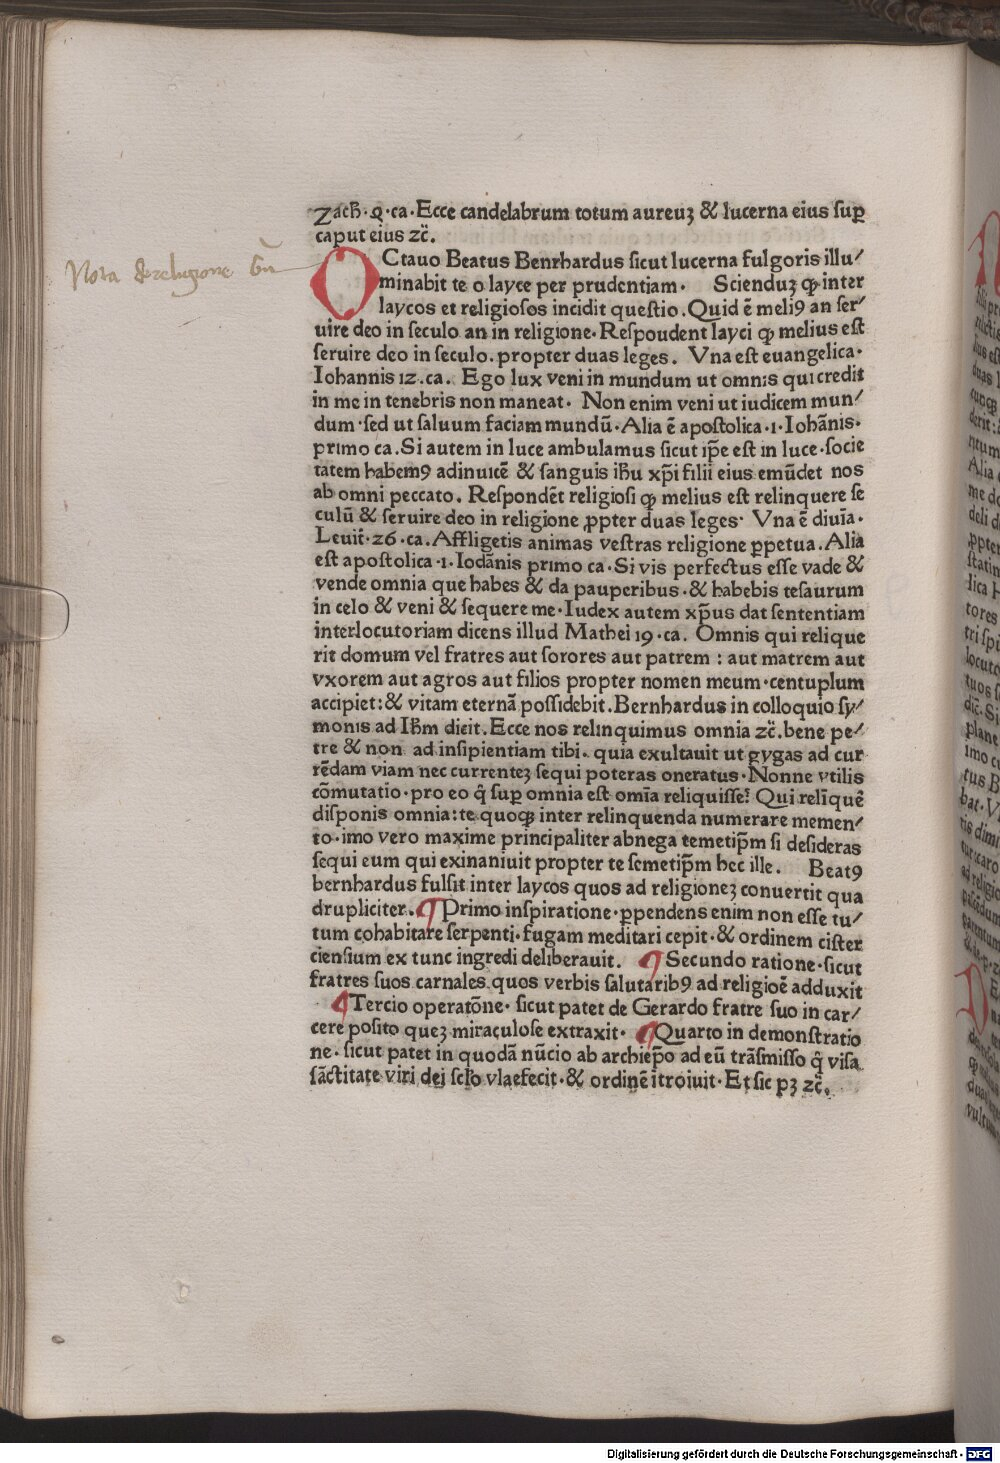 Zach̄·q·ca·Ecce candelabrum totum aureuꝫ & lucerna eius suꝑ
caput eius ⁊c̄.
OCtauo Beatus Benrhardus sicut lucerna fulgoris illu⸗
minabit te o layce per prudentiam· Scienduꝫ ꝙ inter
laycos et religiosos incidit questio. Quid ē meliꝰ an ser⸗
uire deo in seculo an in religione· Respoudent layci ꝙ melius est
seruire deo in seculo. propter duas leges. Vna est euangelica·
Iohannis 12.ca. Ego lux veni in mundum ut omnis qui credit
in me in tenebris non maneat· Non enim veni ut iudicem mun⸗
dum·sed ut saluum faciam mundū·Alia ē apostolica·1·Iohānis·
primo ca.Si autem in luce ambulamus sicut ip̄e est in luce·socie
tatem habemꝰ adinuicē & sanguis ih̄u xp̄i filii eius emūdet nos
ab omni peccato. Respondēt religiosi ꝙ melius est relinquere se
culū & seruire deo in religione ꝓpter duas leges· Vna ē diuīa·
Leuit·26·ca.Affligetis animas vestras religione ꝑpetua.Alia
est apostolica·1·Iodānis primo ca·Si vis perfectus esse vade &
vende omnia que habes & da pauperibus·& habebis tesaurum
in celo & veni & sequere me·Iudex autem xp̄us dat sententiam
interlocutoriam dicens illud Mathei 19·ca. Omnis qui relique
rit domum vel fratres aut sorores aut patrem : aut matrem aut
vxorem aut agros aut filios propter nomen meum·centuplum
accipiet:& vitam eternā possidebit.Bernhardus in colloquio sy⸗
monis ad Ih̄m dicit.Ecce nos relinquimus omnia ⁊c̄.bene pe⸗
tre & non ad insipientiam tibi. quia exultauit ut gygas ad cur
rēdam viam nec currenteꝫ sequi poteras oneratus·Nonne vtilis
cōmutatio·pro eo q̄ suꝑ omnia est omīa reliquisse? Qui relīquē
disponis omnia:te quoqꝫ inter relinquenda numerare memen⸗
to·imo vero maxime principaliter abnega temetip̄m si desideras
sequi eum qui exinaniuit propter te semetip̄m hec ille. Beatꝰ
bernhardus fulsit inter laycos quos ad religioneꝫ conuertit qua
drupliciter. ¶ Primo inspiratione·ꝑpendens enim non esse tu⸗
tum cohabitare serpenti·fugam meditari cepit·& ordinem cister
ciensium ex tunc ingredi deliberauit. ¶ Secundo ratione·sicut
fratres suos carnales quos verbis salutaribꝰ ad religioē adduxit
· ¶ Tercio operatōne· sicut patet de Gerardo fratre suo in car⸗
cere posito queꝫ miraculose extraxit· ¶ Quarto in demonstratio
ne· sicut patet in quodā nūcio ab archiep̄o ad eū trāsmisso q̄ visa
sāctitate viri dei sclo vlaefecit·& ordinē itroiuit·Et sic pꝫ ⁊c̄.
Nota de religione
Digitalisierung gefördert durch die Deutsche Forschungsgemeinschaft - DFG